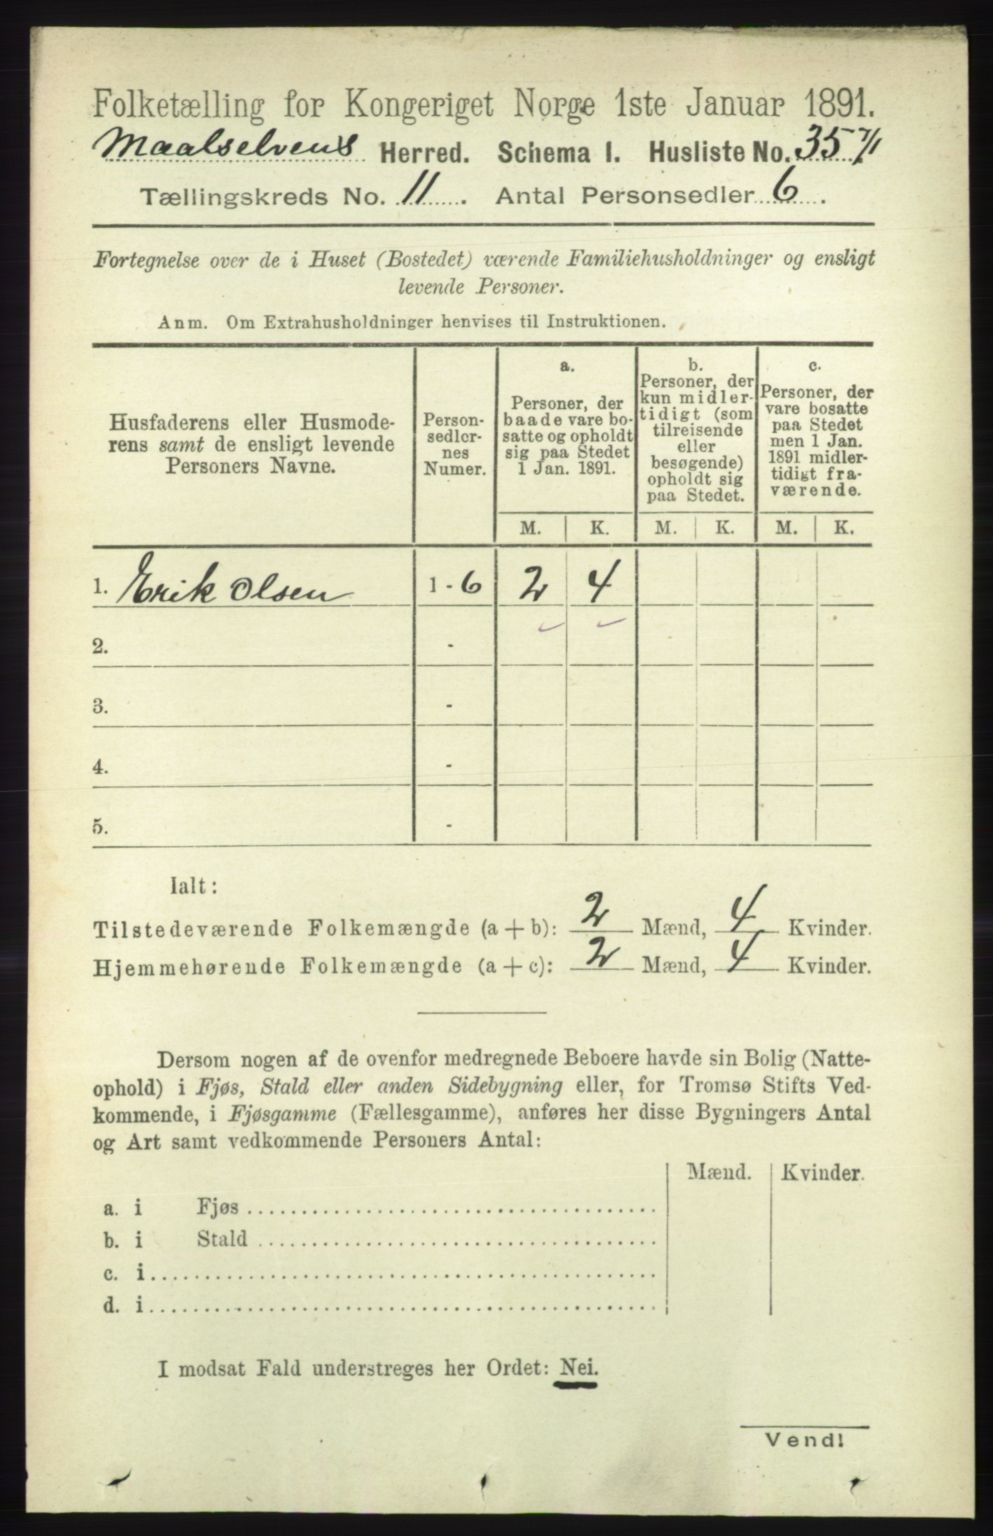 Folketælling for Kongeriget Norge 1ste Januar 1891.
Maalselvens Herred. Schema I. Husliste No. 35
Tællingskreds No. 11. Antal Personsedler 6.
Fortegnelse over de i Huset (Bostedet) værende Familiehusholdninger og ensligt
levende Personer.
Anm. Om Extrahusholdninger henvises til Instruktionen.
Husfaderens eller Husmode-
rens samt de ensligt levende
Personers Navne.
Person-
sedler-
nes
Numer.
a.
Personer, der
baade vare bo-
satte og opholdt
sig paa Stedet
1 Jan. 1891.
b.
Personer, der
kun midler-
tidigt (som
tilreisende
eller
besøgende)
opholdt sig
paa Stedet.
c.
Personer, der
vare bosatte
paa Stedet
men 1 Jan.
1891 midler-
tidigt fra-
værende.
M. K. M. K. M. K.
1. Erik Olsen 1-6 2 4
2. -
3. -
4. -
5. -
Ialt:
Tilstedeværende Folkemængde (a+b): 2 Mænd, 4 Kvinder.
Hjemmehørende Folkemængde (a+c): 2 Mænd, 4 Kvinder.
Dersom nogen af de ovenfor medregnede Beboere havde sin Bolig (Natte-
ophold) i Fjøs, Stald eller anden Sidebygning eller, for Tromsø Stifts Ved-
kommende, i Fjøsgamme (Fællesgamme), anføres her disse Bygningers Antal
og Art samt vedkommende Personers Antal:
Mænd. Kvinder.
a. i Fjøs
b. i Stald
c. i
d. i
I modsat Fald understreges her Ordet: Nei.
Vend!